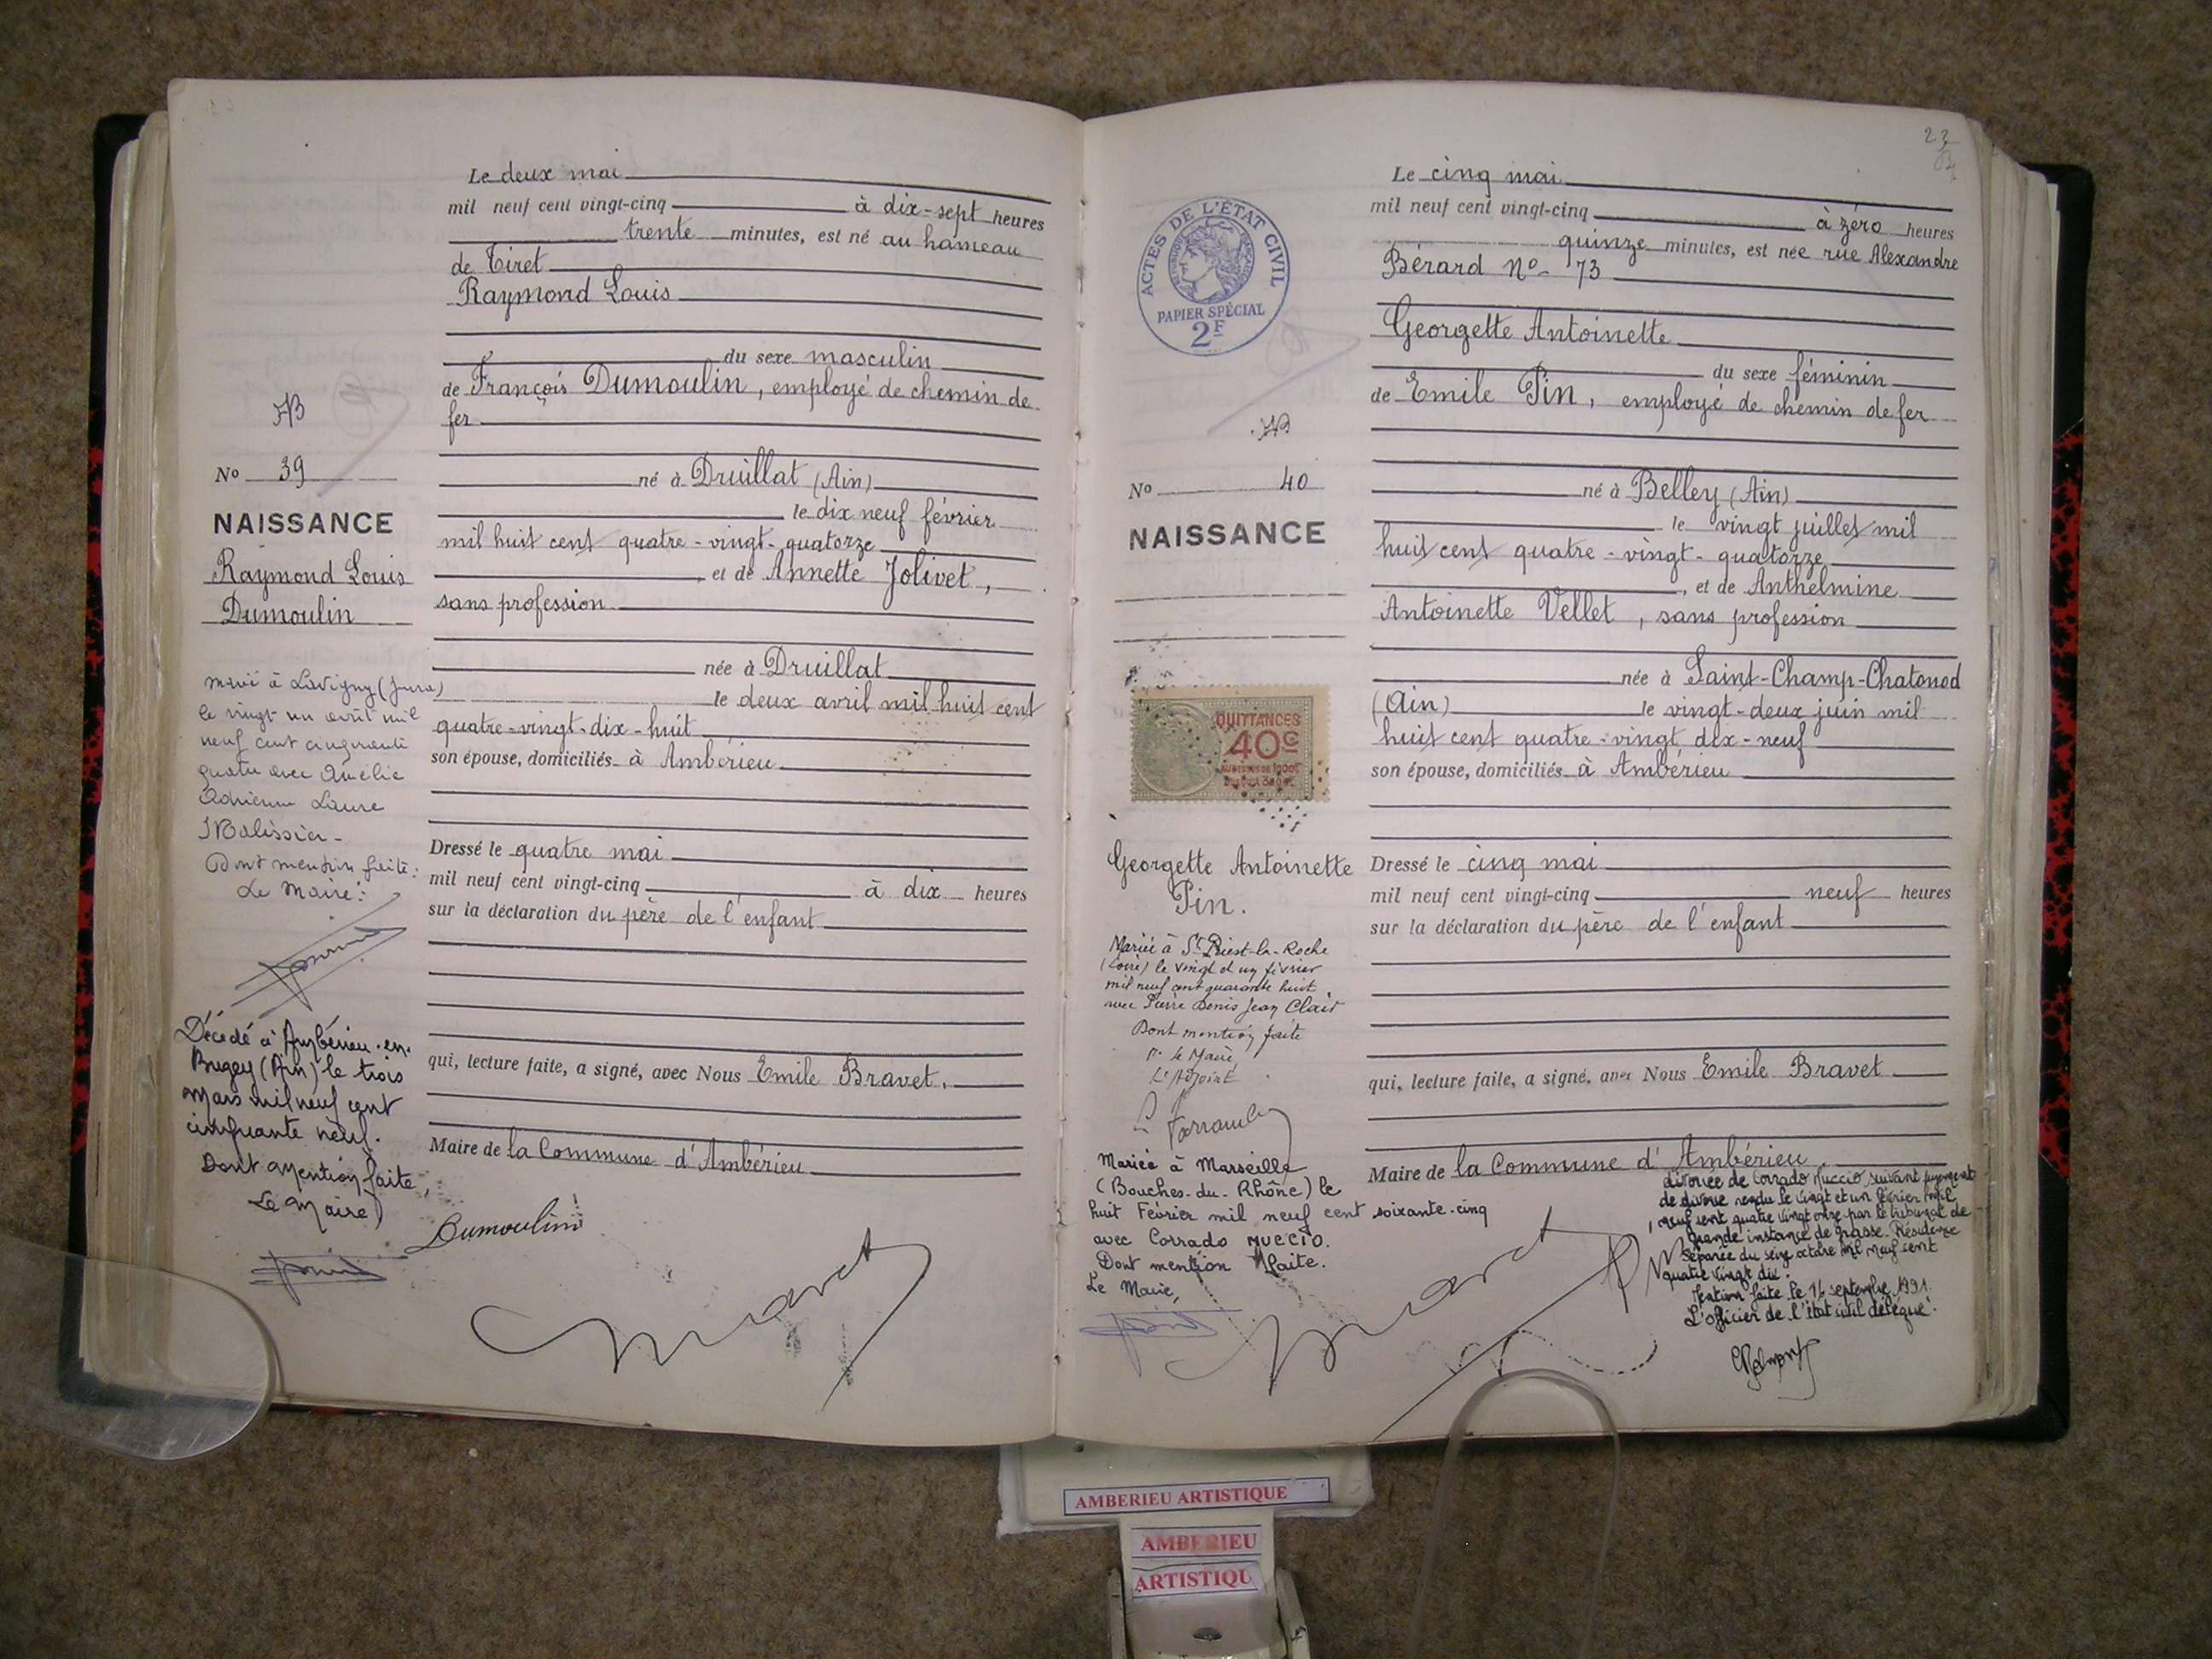 Le deux mai
mil neuf cent vingt-cinq à dix-sept heures
trente minutes, est né au hameau
de Tiret
Raymond Louis
du sexe masculin
de François Dumoulin, employé de chemin de
fer
né à Druillat (Ain)
le dix neuf février
mil huit cent quatre-vingt-quatorze
, et de Annette Jolivet,
sans profession
née à Druillat
le deux avril mil huit cent
quatre-vingt-dix-huit
son épouse, domiciliés à Ambérieu
Dressé le quatre mai
mil neuf cent vingt-cinq à dix heures
sur la déclaration du père de l'enfant
qui, lecture faite, a signé, avec Nous Emile Bravet,
Maire de la Commune d'Ambérieu
Dumoulin
No 39
NAISSANCE
Raymond Louis
Dumoulin
Marié à Lavigny (Jura)
le vingt un avril mil
neuf cent cinquante
quatre avec Amélie
Adrienne Laure
Dont mention faite:
Le Maire:
Décédé à Ambérieu-en-
Bugey (Ain) le trois
Mars mil neuf cent
cinquante neuf.
Dont mention faite,
Le Maire
23
ACTES DE L'ÉTAT CIVIL
PAPIER SPÉCIAL
2F
Le cinq mai
mil neuf cent vingt-cinq à zéro heures
quinze minutes, est née rue Alexandre
Bérard No 73
Georgette Antoinette
du sexe féminin
de Emile Pin, employé de chemin de fer
né à Belley (Ain)
le vingt juillet mil
huit cent quatre-vingt-quatorze
, et de Anthelmine
Antoinette Vellet, sans profession
née à Saint-Champ-Chatonod
(Ain) le vingt-deux juin mil
huit cent quatre-vingt dix-neuf
son épouse, domiciliés à Ambérieu
Dressé le cinq mai
mil neuf cent vingt-cinq neuf heures
sur la déclaration du père de l'enfant
qui, lecture faite, a signé, avec Nous Emile Bravet
Maire de la Commune d'Ambérieu.
No 40
NAISSANCE
QUITTANCES
40c
Georgette Antoinette
Pin.
Mariée à St Priest-la-Roche
(Loire) le vingt et un février
mil neuf cent quarante huit
avec Pierre Denis Jean Clair
Dont mention faite
P. le Maire
L'Adjoint
Mariée à Marseille
(Bouches-du-Rhône) le
huit Février mil neuf cent soixante-cinq
avec Corrado MUCCIO.
Dont mention faite.
Le Maire,
divorcée de Corrado Muccio suivant jugement
de divorce rendu le vingt et un février mil
neuf cent quatre vingt onze par le tribunal de
grande instance de Grasse. Résidence
séparée du seize octobre mil neuf cent
quatre vingt dix.
Mention faite le 16 septembre 1991.
L'officier de l'état civil délégué.
AMBERIEU ARTISTIQUE
AMBERIEU
ARTISTIQU